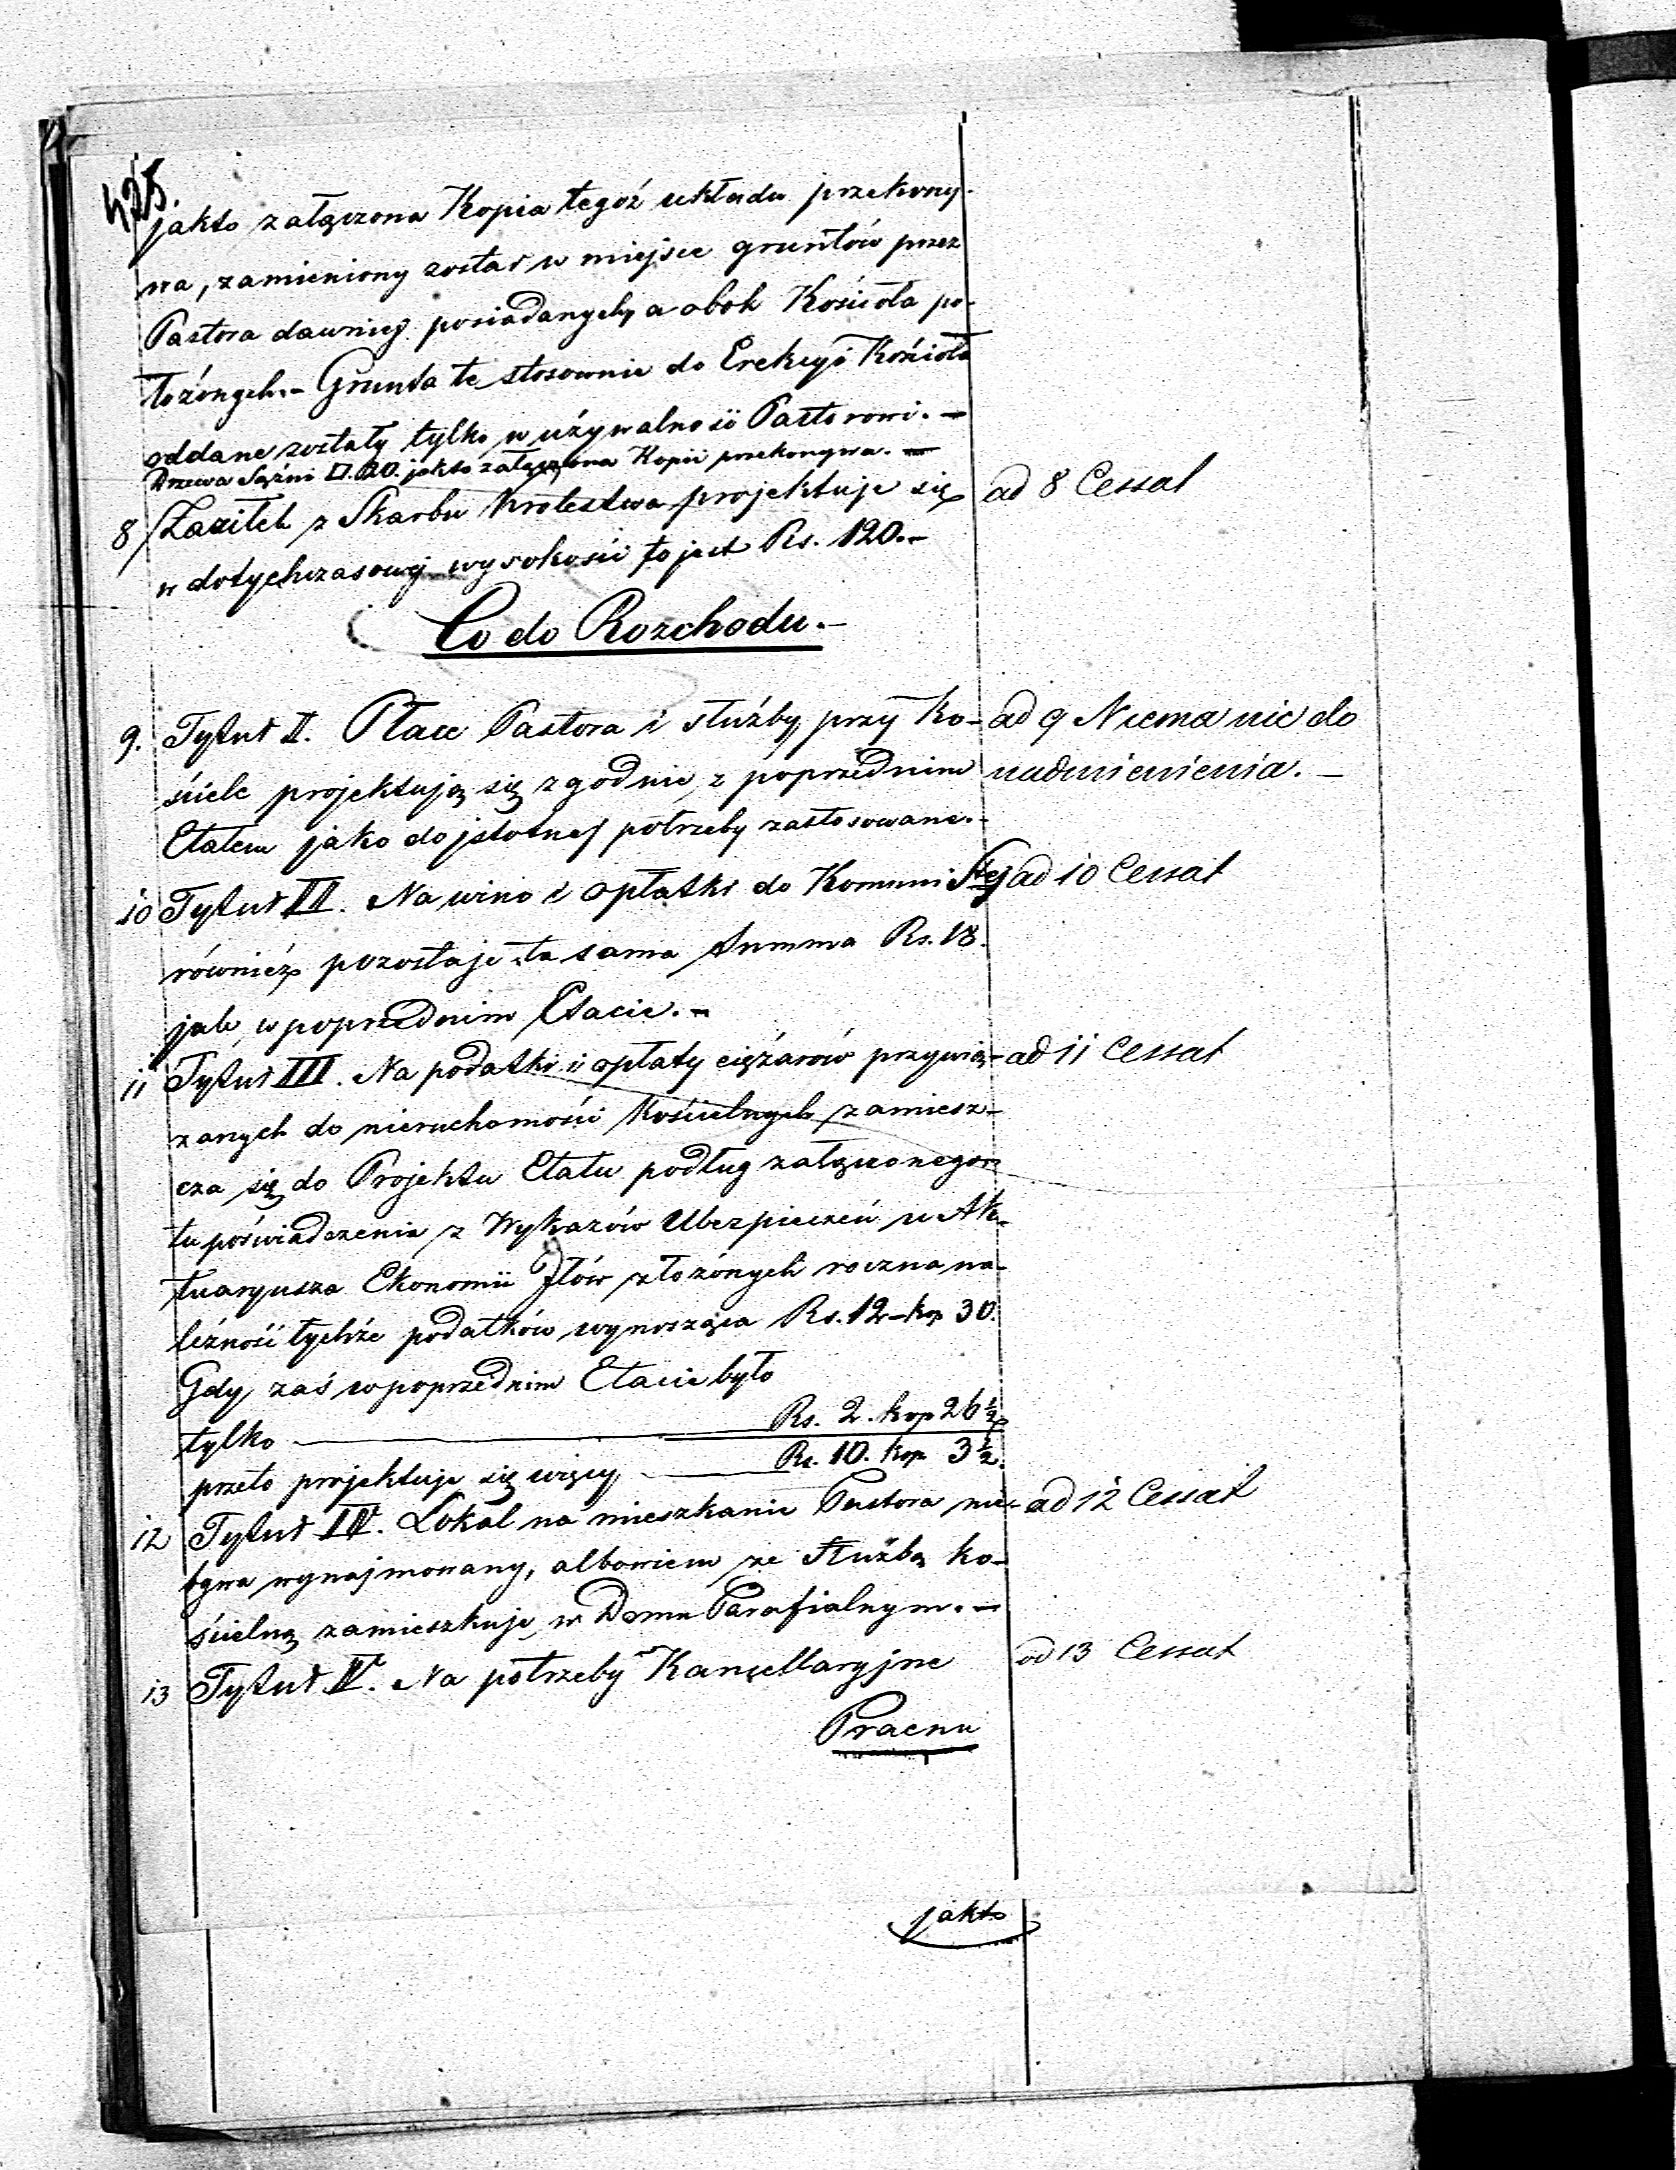 425.
jakto załączona Kopia tegoż układu przekony-
wa, zamieniony został w miejsce gruntów przez
Pastora dawniej posiadanych, a obok Kościoła po-
łożonych.- Grunta te stosownie do Erekcyi Kościoła
oddane zostały tylko w używalność Pastorowi. -
Drzewa Sążni □. 20. jakto załączona Kopii przekonywa. -
8/ Zasiłek z Skarbu Królestwa projektuje się ad 8 Cessat
w dotychczasowej wysokości to jest Rs. 120.-
Co do Rozchodu.-
9. Tytuł II. Płace Pastora i służby przy Ko- ad 9 Niema nic do
ściele projektują się zgodnie z poprzednim nadmienienia. -
Etatem jako do jstotnej potrzeby zastosowane.-
10 Tytuł III. Na wino i opłatki do Komuni Stej ad 10 Cessat
również pozostaje ta sama Summa Rs. 18.
jak w poprzednim Etacie. -
11 Tytuł III. Na podatki i opłaty ciężarów przywią- ad 11 Cessat
zanych do nieruchomości Kościelnych zamiesz-
cza się do Projektu Etatu podług załączonego
tu poświadczenia z Wykazów Ubezpieczeń u Ak-
tuaryusza Ekonomii złożonych roczna na-
leżność tychże podatków wynosząca Rs. 12 - kop 30.
Gdy zaś w poprzednim Etacie było
tylko Rs. 2. kop 26 ½
przeto projektuje się więcej Rs. 10. kop 3 ½.
12 Tytuł IV. Lokal na mieszkanie Pastora nie- ad 12 Cessat
bywa wynajmowany, albowiem ze Służbą ko-
ścielną zamieszkuje w Domu Parafialnym. -
13 Tytuł V. Na potrzeby Kancellaryjne ad 13 Cessat
Pracnu
jakto